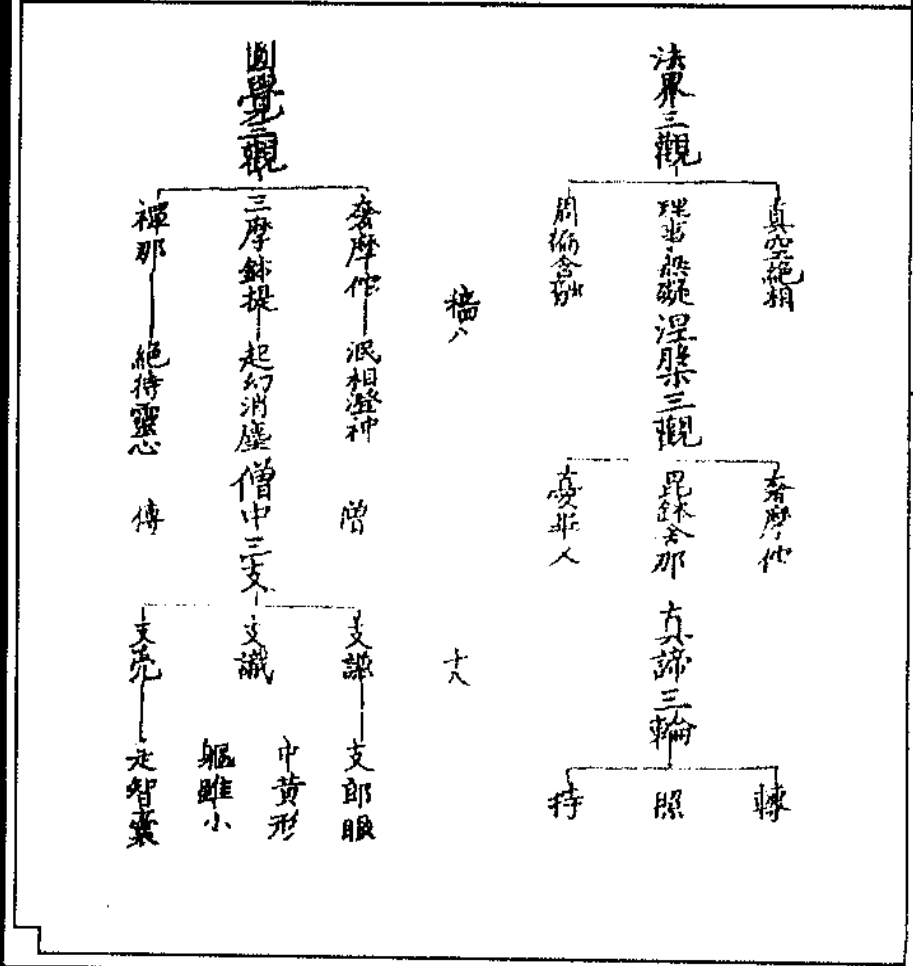 法界三觀
真空絕相
理事無礙
周徧含融
涅槃三觀
奢摩他
毘鉢舍那
憂畢人
真諦三輪
轉
照
持
十八
圓覺三觀
奢摩他
泯相澄神
三摩鉢提
起幻消塵
禪那
絕待靈心
僧中三支
支謙
支郎眼
中黄形
軀雖小
支識
支亮
是智囊
傳